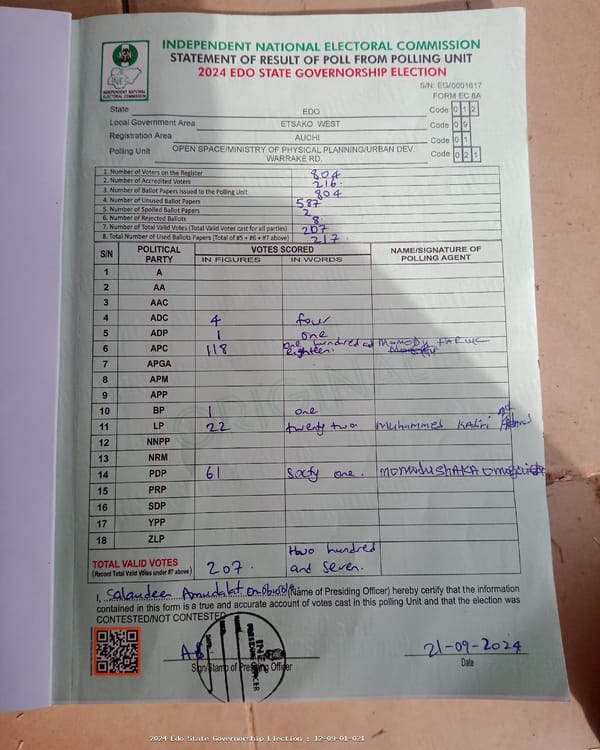 INDEPENDENT NATIONAL ELECTORAL COMMISSION
STATEMENT OF RESULT OF POLL FROM POLLING UNIT
2024 EDO STATE GOVERNORSHIP ELECTION
INEC
INDEPENDENT NATIONAL ELECTORAL COMMISSION
S/N: EG/0001617
FORM EC 8A
State EDO Code 0 1 2
Local Government Area ETSAKO WEST Code 0 9
Registration Area AUCHI Code 0 1
Polling Unit OPEN SPACE/MINISTRY OF PHYSICAL PLANNING/URBAN DEV. WARRAKE RD. Code 0 2 1
1. Number of Voters on the Register 804
2. Number of Accredited Voters 216.
3. Number of Ballot Papers Issued to the Polling Unit 804
4. Number of Unused Ballot Papers 587
5. Number of Spoiled Ballot Papers 2
6. Number of Rejected Ballots 8
7. Number of Total Valid Votes (Total Valid Votes cast for all parties) 207
8. Total Number of Used Ballots Papers (Total of #5 + #6 + #7 above) 217
S/N POLITICAL PARTY VOTES SCORED NAME/SIGNATURE OF POLLING AGENT
IN FIGURES IN WORDS
1 A
2 AA
3 AAC
4 ADC 4 four
5 ADP 1 one
6 APC 118 one hundred and eighteen. Momodu
7 APGA
8 APM
9 APP
10 BP 1 one
11 LP 22 twenty two Muhammed Kadiri
12 NNPP
13 NRM
14 PDP 61 Sixty one. MOMODU SHAKA
15 PRP
16 SDP
17 YPP
18 ZLP
TOTAL VALID VOTES 207. two hundred and seven.
(Record Total Valid Votes under #7 above)
I, Salaudeen Amudalat (Name of Presiding Officer) hereby certify that the information
contained in this form is a true and accurate account of votes cast in this polling Unit and that the election was
CONTESTED/NOT CONTESTED
INEC
PRESIDING OFFICER
21-09-2024
Sign/Stamp of Presiding Officer Date
2024 Edo State Governorship Election : 12-09-01-021